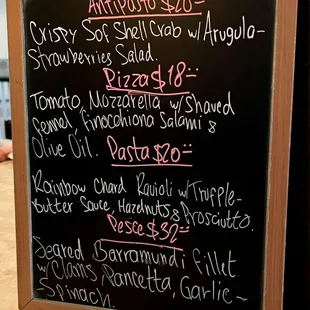 Antipasto $20~
Crispy Sof Shell Crab w/Arugula-
Strawberries Salad.
Pizza $18~
Tomato, Mozzarella w/Shaved
fennel, Finocchiona Salami &
Olive Oil.
Pasta $20~
Rainbow Chard Ravioli w/Truffle-
Butter Sauce, Hazelnuts & Prosciutto.
Pesce $32~
Seared Barramundi Fillet
w/Clams, Pancetta, Garlic-
Spinach.